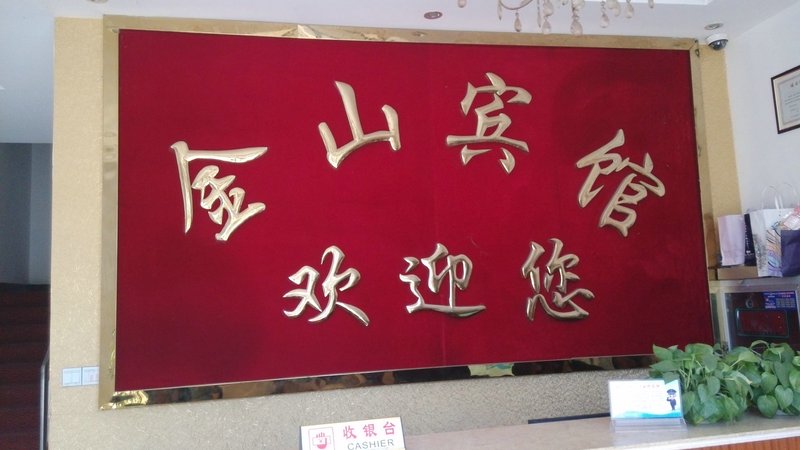 金山宾馆
欢迎您
收银台
CASHIER